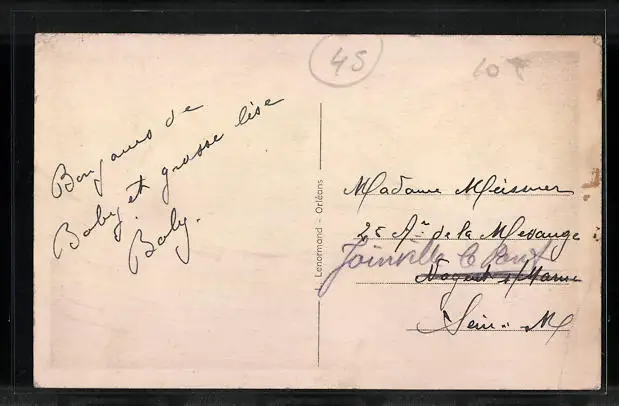 45
Bonjours de
Baby et grosse bise
Baby.
L. Lenormand - Orléans
Madame Meismer
25 Ar de la Mesange
Joinville le Pont
Nogent s/Marne
Seine M